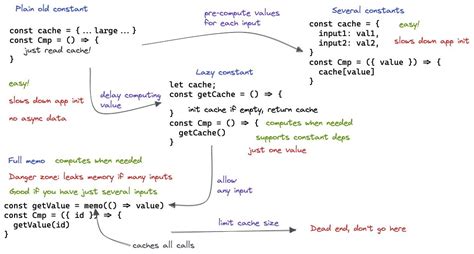 Plain old constant
const cache = {...large...}
const Cmp = () => {
just read cache!
}
easy!
slows down app init
no async data
pre-compute values
for each input
Several constants
const cache = {
easy!
input1: val1,
input2: val2,
slows down app init
}
const Cmp = ({ value }) => {
cache[value]
}
delay computing
value
Lazy constant
let cache;
const getCache = () => {
init cache if empty, return cache
}
const Cmp = () => {
computes when needed
getCache()
supports constant deps
}
just one value
Full memo
computes when needed
Danger zone: leaks memory if many inputs
Good if you have just several inputs
const getValue = memo(() => value)
const Cmp = ({ id }) => {
getValue(id)
}
allow
any input
caches all calls
limit cache size
Dead end, don't go here